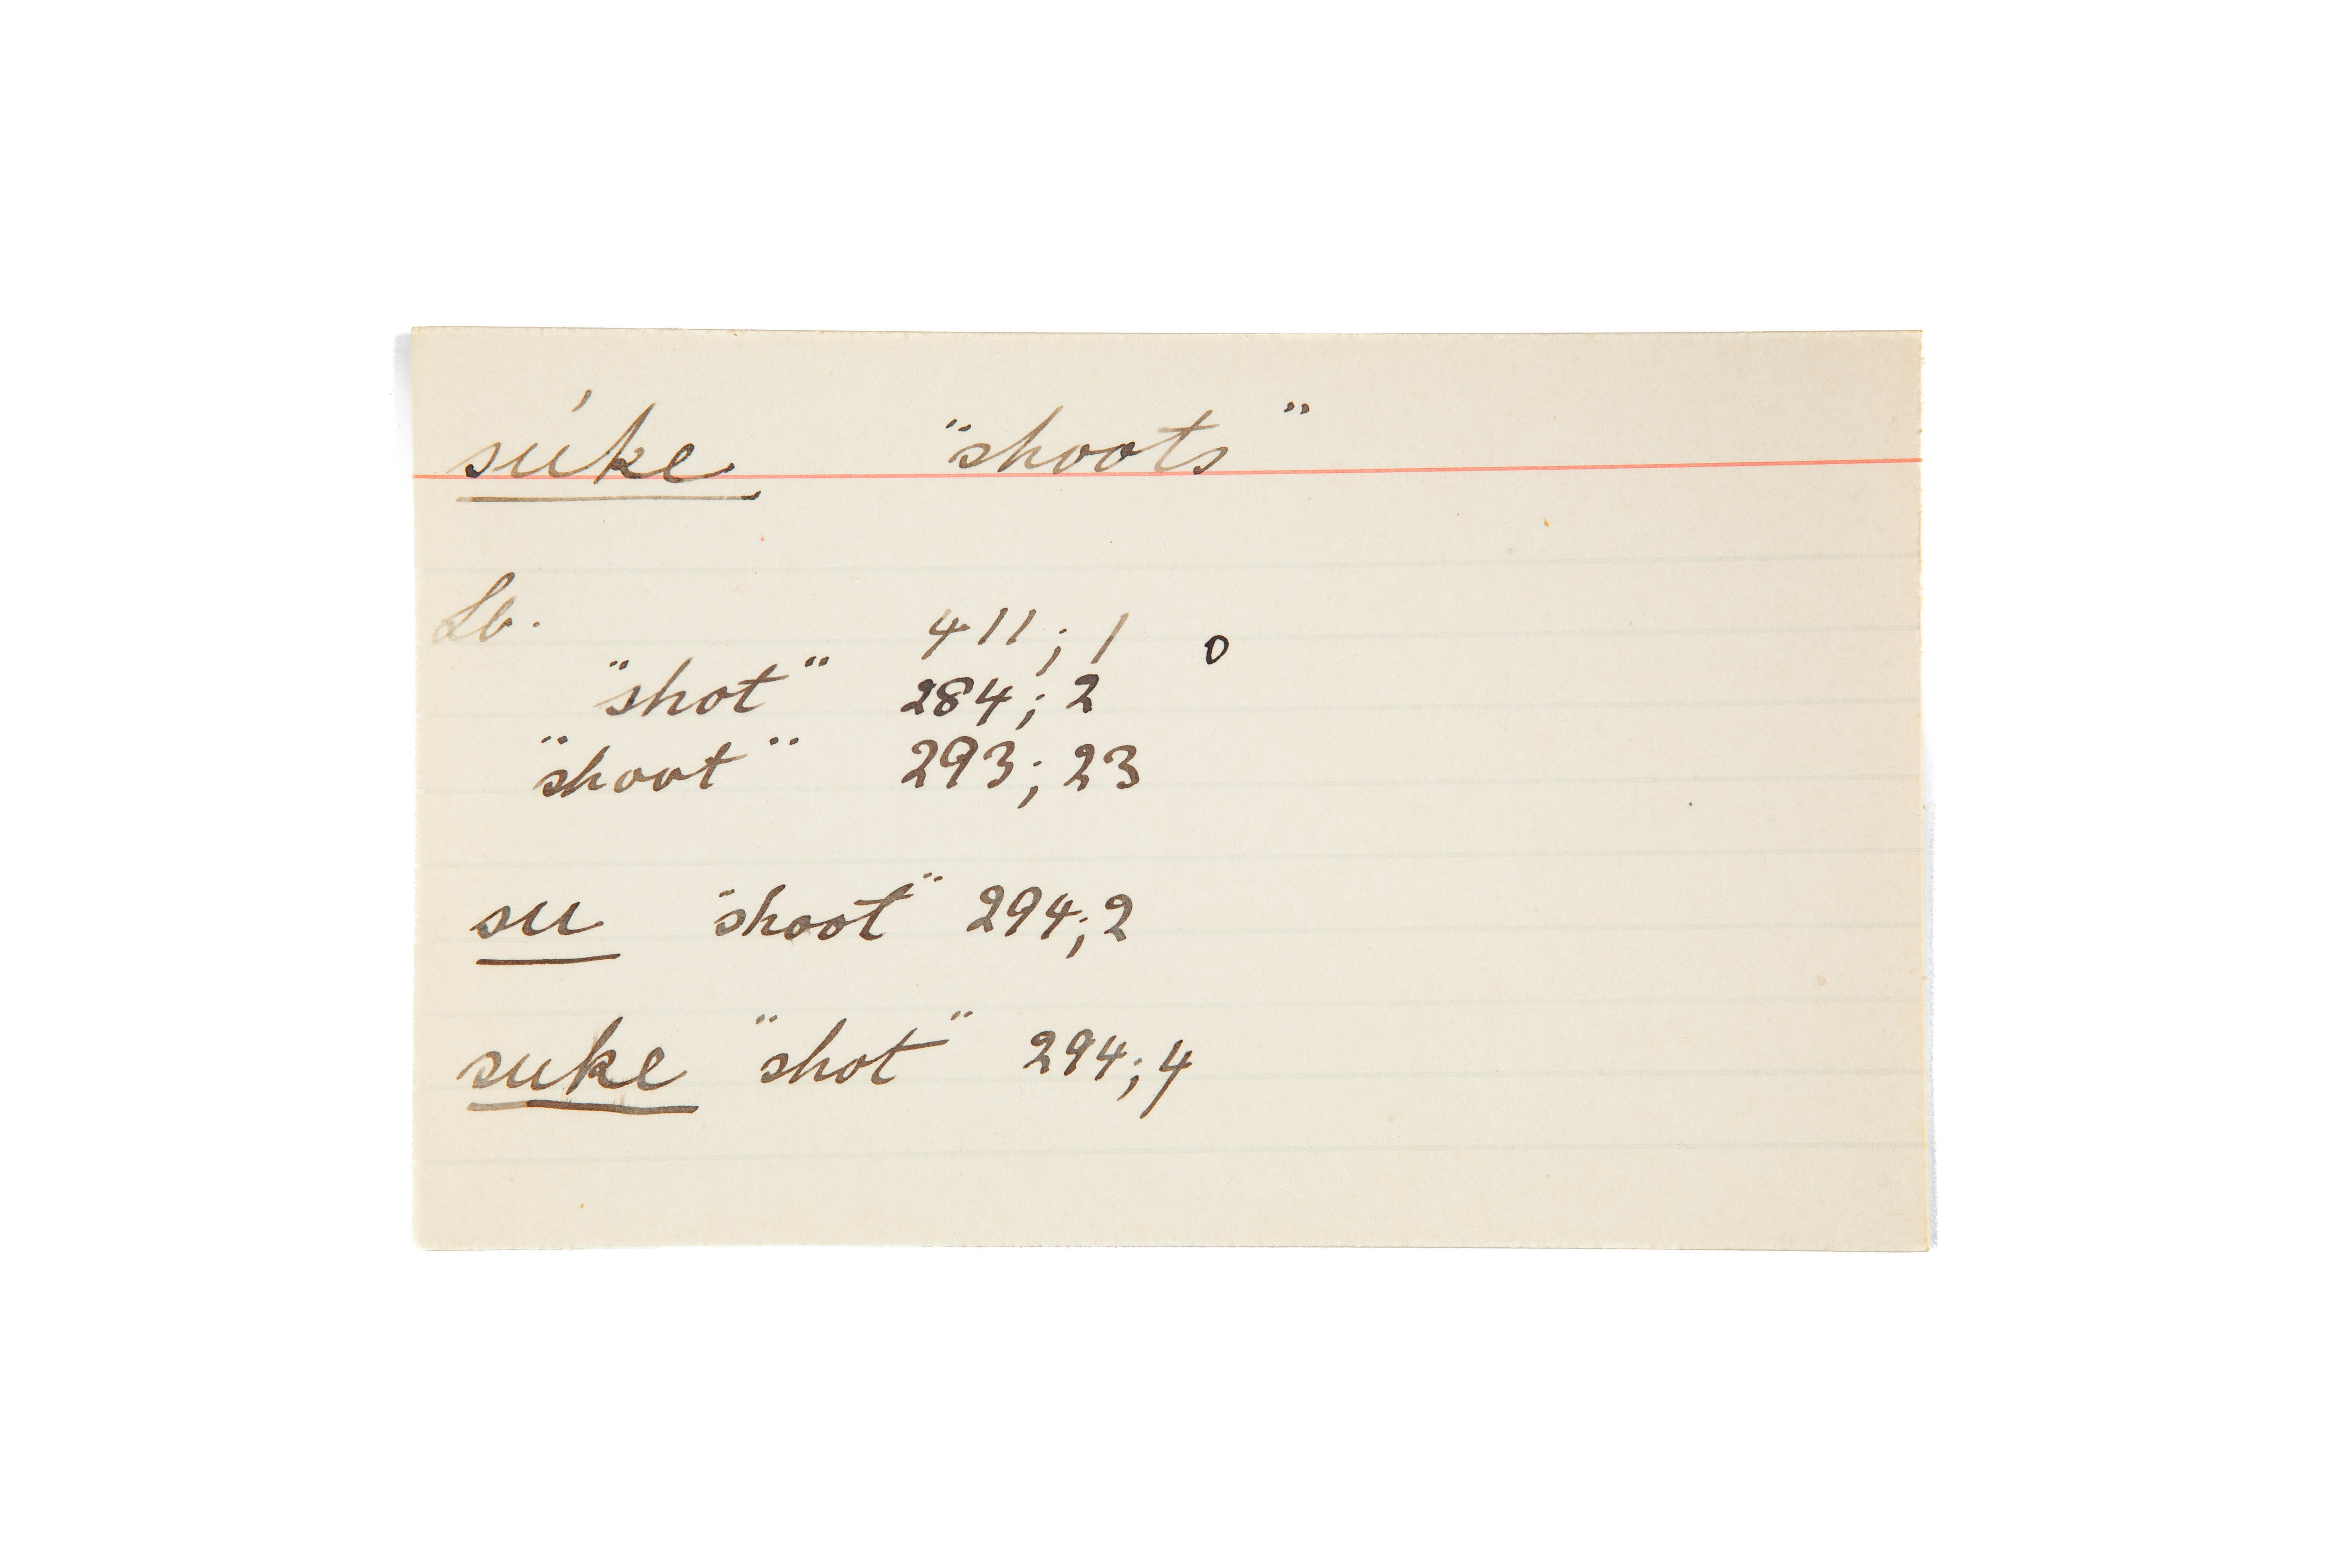 súke "shoots"
Lb. 411; 1 o
"shot" 284; 2
"shoot" 293; 23
su "shoot" 294; 2
suke "shot" 294; 4